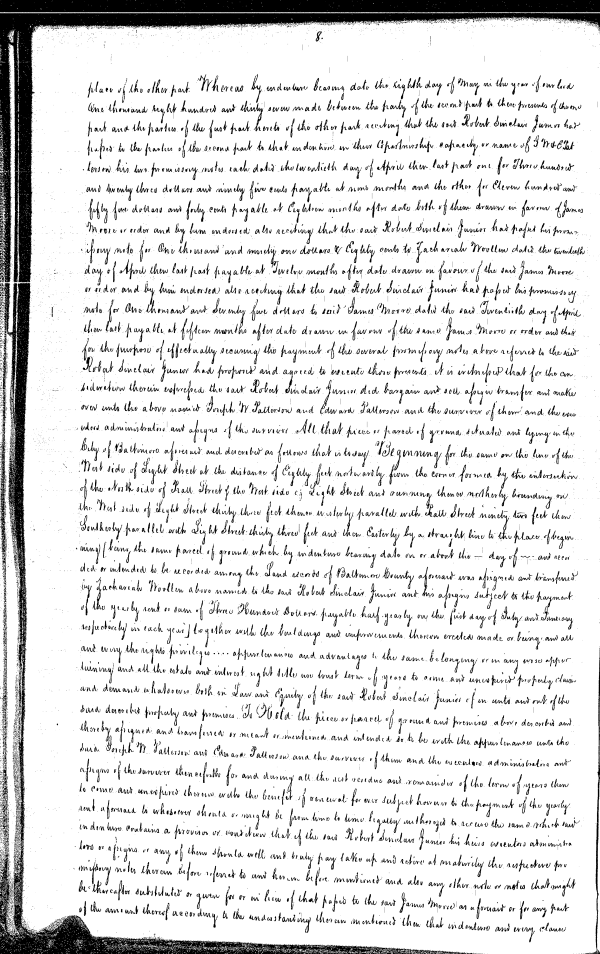 8.
place of the other part Whereas by indenture bearing date the Eighth day of May in the year of our lord
One thousand eight hundred and thirty seven made between the party of the second part to these presents of the one
part and the parties of the first part hereto of the other part reciting that the said Robert Sinclair Junior had
passed to the parties of the second part to that indenture in their Copartnership capacity or name of J W & E Pat
terson his two promissory notes each dated the twentieth day of April then last past one for Three hundred
and twenty three dollars and ninety five cents payable at nine months and the other for Eleven hundred and
fifty five dollars and forty cents payable at Eighteen months after date both of them drawn in favour of James
Moore or order and by him endorsed also reciting that the said Robert Sinclair Junior had passed his prom
issory note for One thousand and ninety one dollars & Eighty cents to Zachariah Woollen dated the twentieth
day of April then last past payable at Twelve months after date drawn in favour of the said James Moore
or order and by him endorsed also reciting that the said Robert Sinclair Junior had passed his promissory
note for One thousand and Seventy five dollars to said James Moore dated the said Twentieth day of April
then last payable at fifteen months after date drawn in favour of the same James Moore or order and that
for the purpose of effectually securing the payment of the several promissory notes above referred to the said
Robert Sinclair Junior had proposed and agreed to execute those presents. it is witnessed that for the con
sideration therein expressed the said Robert Sinclair Junior did bargain and sell assign transfer and make
over unto the above named Joseph W Patterson and Edward Patterson and the survivor of them and the exec
utors administrators and assigns of the survivor All that piece or parcel of ground situated and lying in the
City of Baltimore aforesaid and described as follows that is to say Beginning for the same on the line of the
West side of Light Street at the distance of Eighty feet northwardly from the corner formed by the intersection
of the North side of Hall Street & the West side of Light Street and running thence northerly bounding on
the West side of Light Street thirty three feet thence westerly parallel with Hall Street ninety two feet then
Southerly parallel with Light Street thirty three feet and then Easterly by a straight line to the place of begin
ning / being the same parcel of ground which by indenture bearing date on or about the — day of — and recor
ded or intended to be recorded among the Land records of Baltimore County aforesaid was assigned and transferred
by Zachariah Woollen above named to the said Robert Sinclair Junior and his assigns subject to the payment
of the yearly rent or sum of Three Hundred Dollars payable half yearly on the first day of July and January
respectively in each year / together with the buildings and improvements thereon erected made or being and all
and every the rights privileges .... appurtenances and advantages to the same belonging or in any wise apper
taining and all the estate and interest right title use trust term of years to come and unexpired property claim
and demand whatsoever both in Law and Equity of the said Robert Sinclair Junior of in unto and out of the
said described property and premises To Hold the piece or parcel of ground and premises above described and
thereby assigned and transferred or meant or mentioned and intended so to be with the appurtenances unto the
said Joseph W. Patterson and Edward Patterson and the survivor of them and the executors administrators and
assigns of the survivor thenceforth for and during all the rest residue and remainder of the term of years then
to come and unexpired therein with the benefit of renewal for ever subject however to the payment of the yearly
rent aforesaid to whosoever should or might be from time to time legally authorized to receive the same which said
indenture contains a proviso or condition that if the said Robert Sinclair Junior his heirs executors administra
tors or assigns or any of them should well and truly pay take up and retire at maturity the respective pro
missory notes therein before referred to and herein before mentioned and also any other note or notes that might
be thereafter substituted or given for or in lieu of that passed to the said James Moore as aforesaid or for any part
of the amount thereof according to the understanding therein mentioned then that indenture and every clause